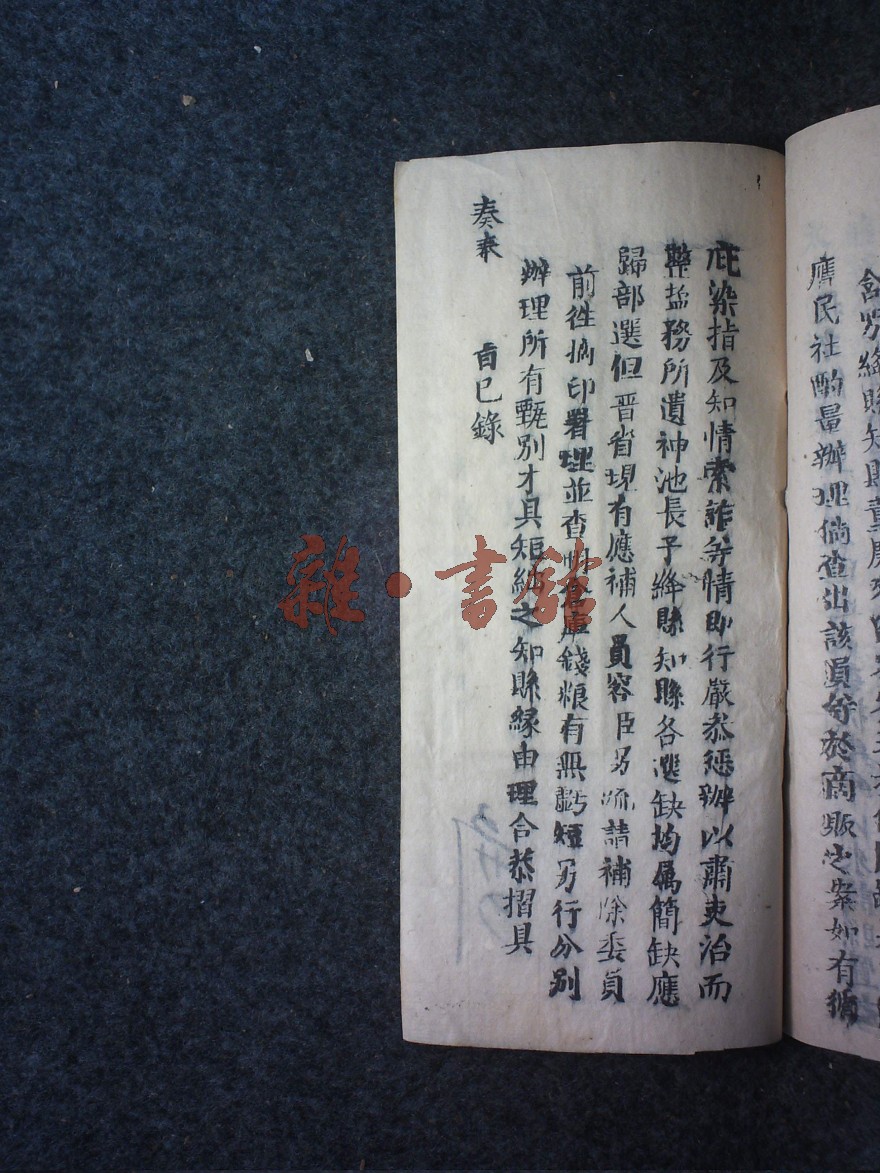 膺民社酌量辦理倘查出該員等於商販之案如有徇
庇染指及知情索詐等情即行嚴叅懲辦以肅吏治而
整盐務所遺神池長子絳縣知縣各選缺均属簡缺應
歸部選但晋省現有應補人員容臣另疏請補除委員
前徃摘印署理並查明倉庫錢粮有無虧短另行分別
辦理所有甄別才具短絀之知縣緣由理合恭摺具
奏奉
旨已錄
雜·書館